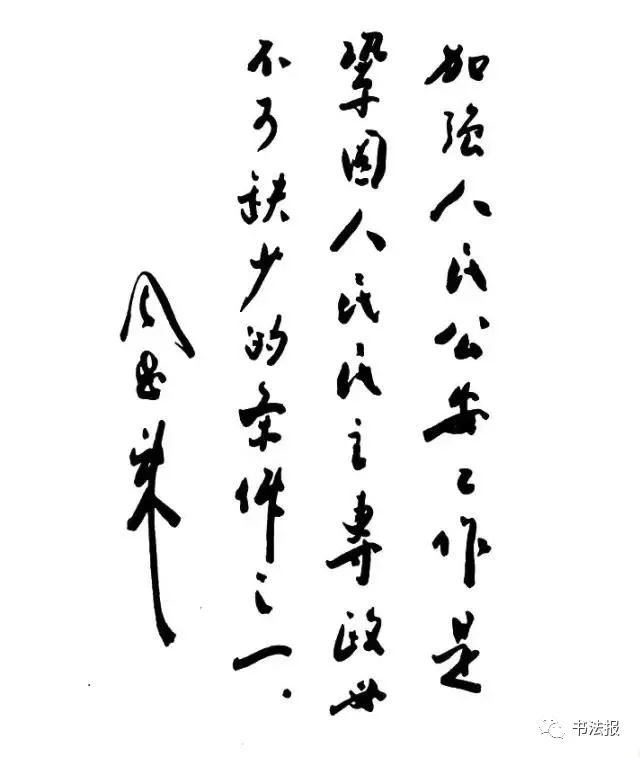 加强人民公安工作是
鞏固人民民主專政
不可缺少的条件之一.
周恩来
书法报